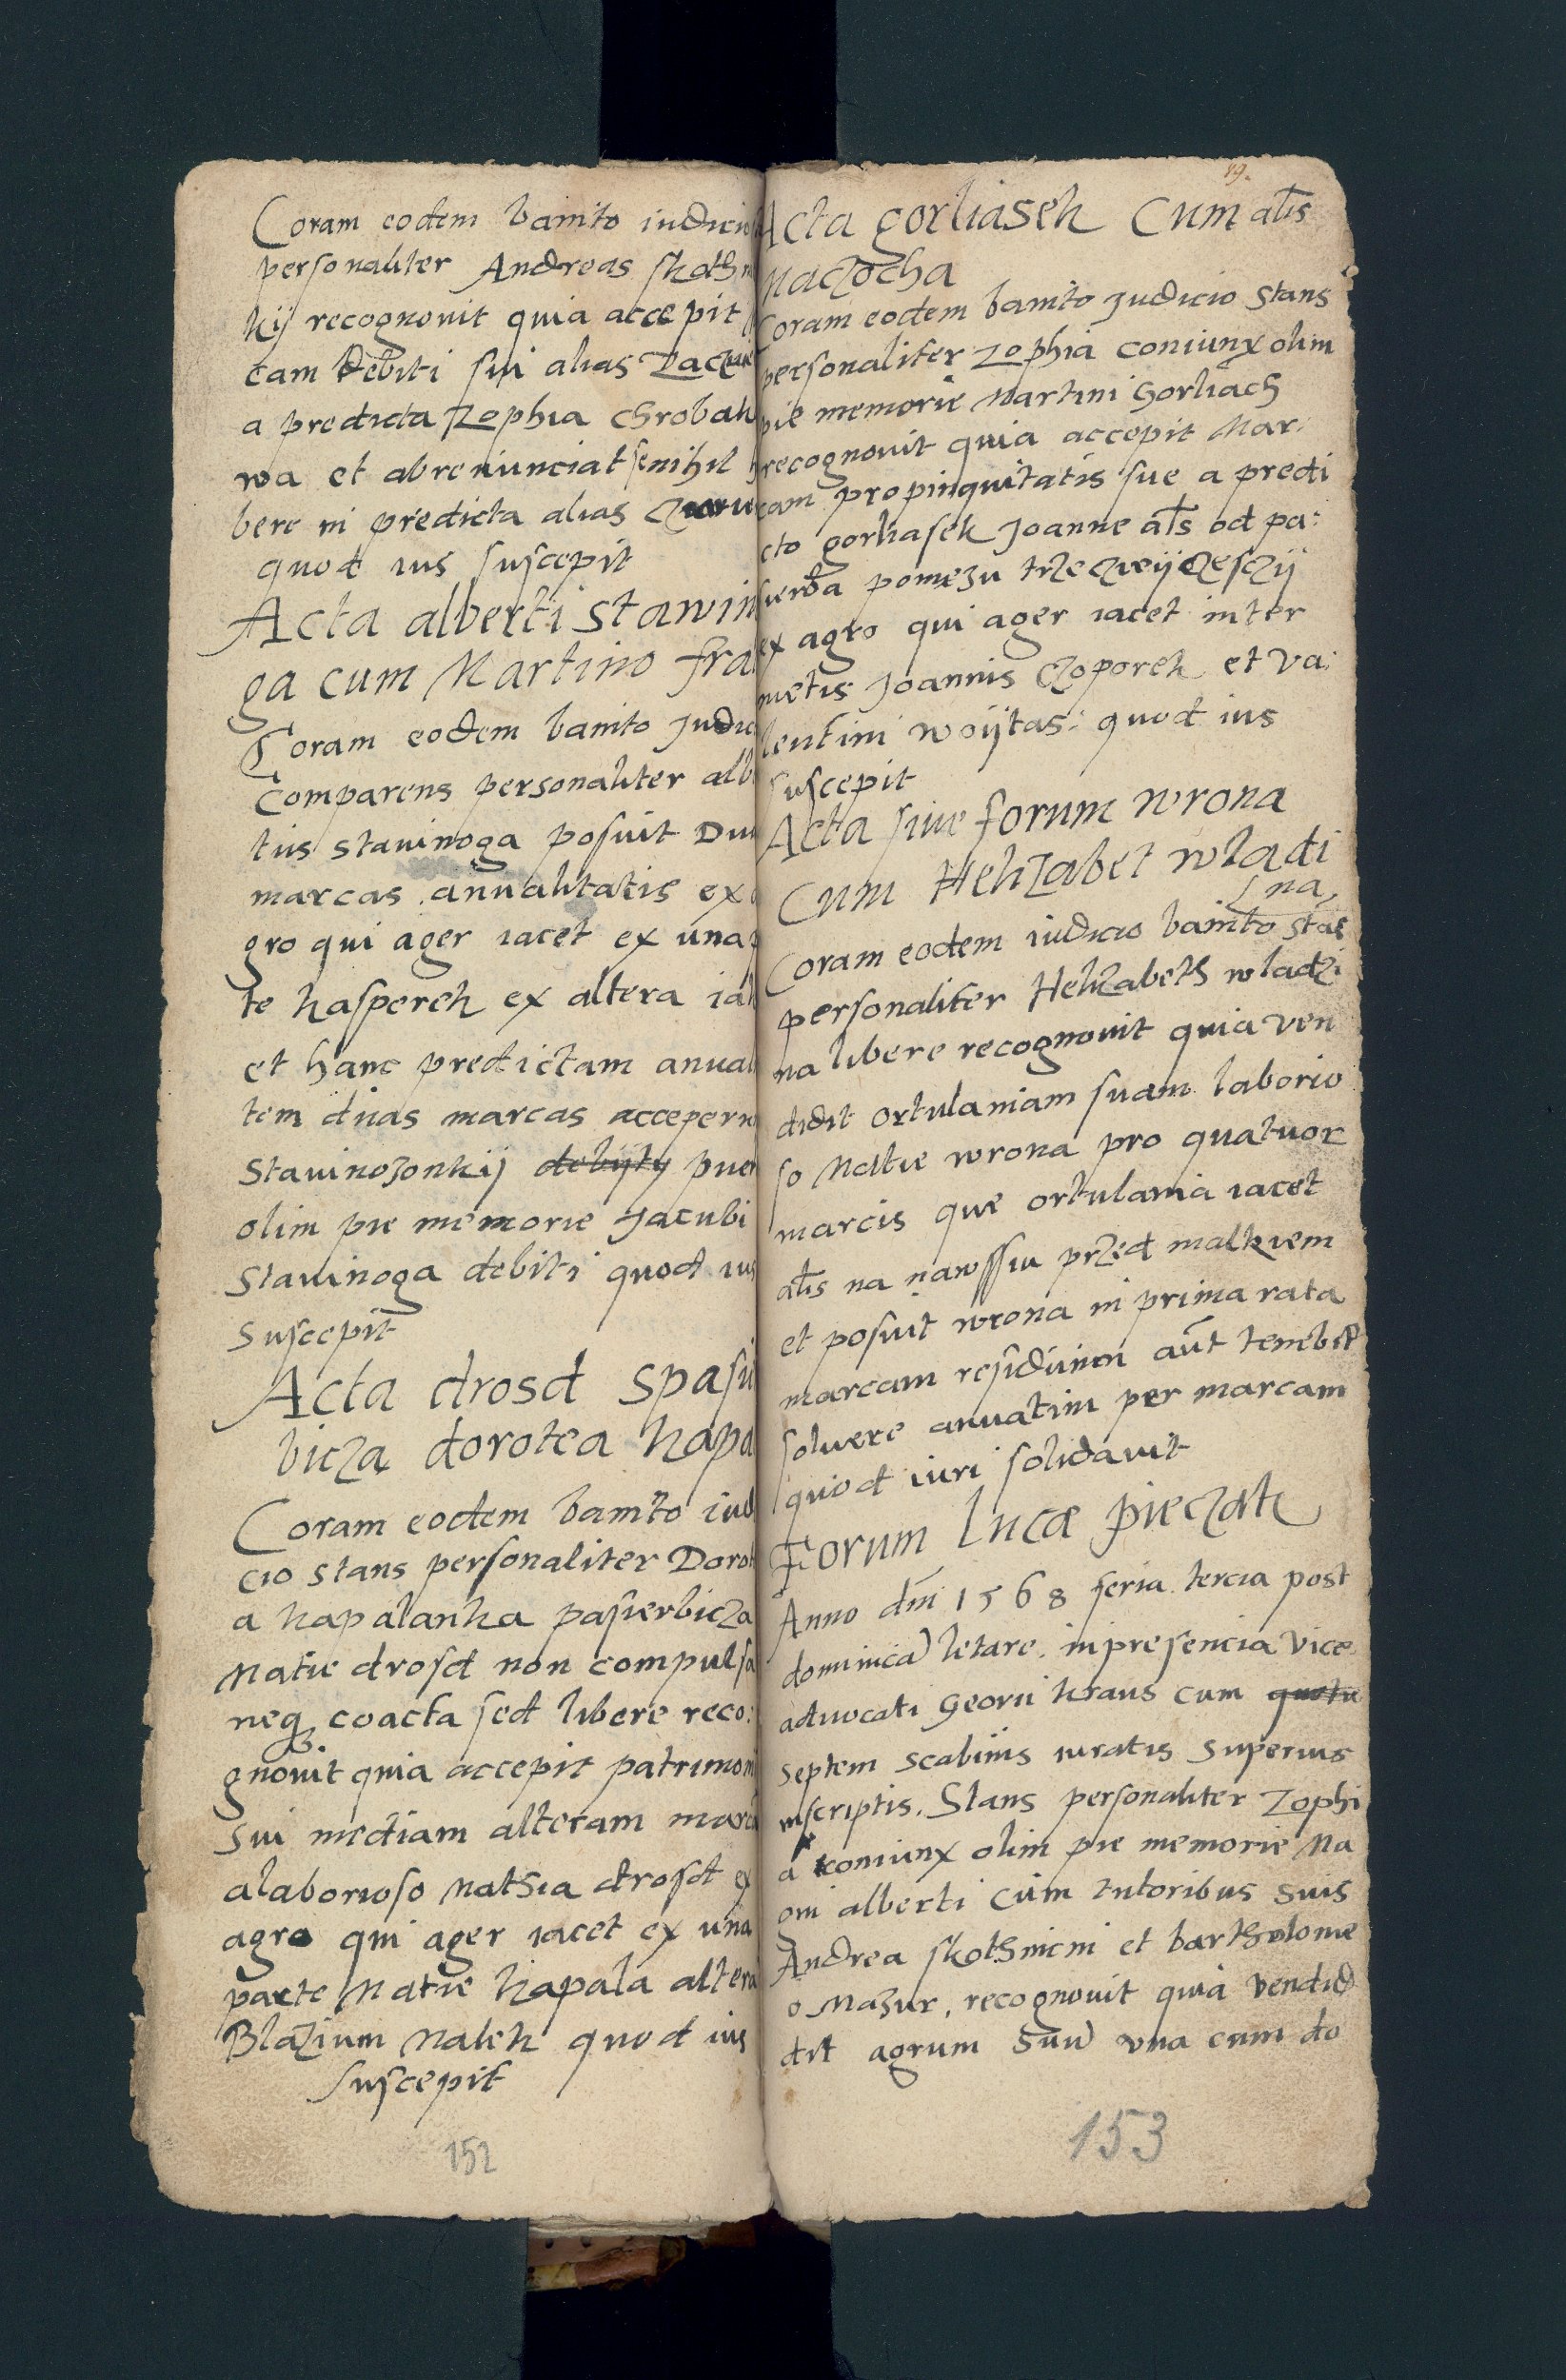 Coram eodem banito iudicio
personaliter Andreas skothni
kij recognouit quia accepit
cam debiti sui alias
a predicta Zophia chrobak
wa et abrenunciat se nihil
bere in predicta alias
quod ius suscepit
Acta alberti stawin
ga cum Martino fra
Coram eodem banito Judic
Comparens personaliter alb
tus stauinoga posuit Du
marcas anualitatis ex
gro qui ager iacet ex una p
te kasperek ex altera
et hanc predictam anual
tem duas marcas acceper
Stauinozonkij debijty puer
olim pie memorie Jacubi
Stauinoga debiti quod ius
suscepit
Acta drosd spasi
bicza dorotea kapa
Coram eodem banito iud
cio stans personaliter Dorot
a kapalanka pasierbicza
Matie drosd non compulsa
neq coacta sed libere reco:
gnouit quia accepit patrimoni
sui mediam alteram marc
alaborioso Mathia drosd ex
agro qui ager iacet ex una
parte Matie kapala altera
Blazium Malek quod ius
suscepit
152
19.
Acta gorliasek Cum als
Maczocha
Coram eodem banito Judicio stans
personaliter Zophia coniunx olim
pie memorie Martini Gorliach
recognouit quia accepit Mar:
cam propinquitatis sue a predi
cto gorliasek Joanne als od pa:
sierba pomezu trzecziej czesczij
ex agro qui ager iacet inter
metis Joannis Czoporek et Va:
lentini woijtas: quod ius
suscepit
Acta siue forum wrona
Cum Helizabet wladi
na
Coram eodem iudicio banito stas
personaliter Helizabeth wladzi
na libere recognouit quia ven
didit ortulaniam suam laborio
so Matie wrona pro quatuor
marcis que ortulania iacet
als na nawssiu przed malkiem
et posuit wrona in prima rata
marcam residuum aut tenebit
soluere anuatim per marcam
quod iuri solidauit
Forum Lucæ pieczak
Anno dni 1568 feria tercia post
dominica letare. in presencia vice
aduocati Georii kraus cum quotu
septem scabinis iuratis superius
inscriptis. Stans personaliter Zophi
a coniunx olim pie memorie Ma
gni alberti cum tutoribus suis
Andrea skothnicni et bartholome
o Mazur, recognouit quia vendid
dit agrum suu una cum do
153